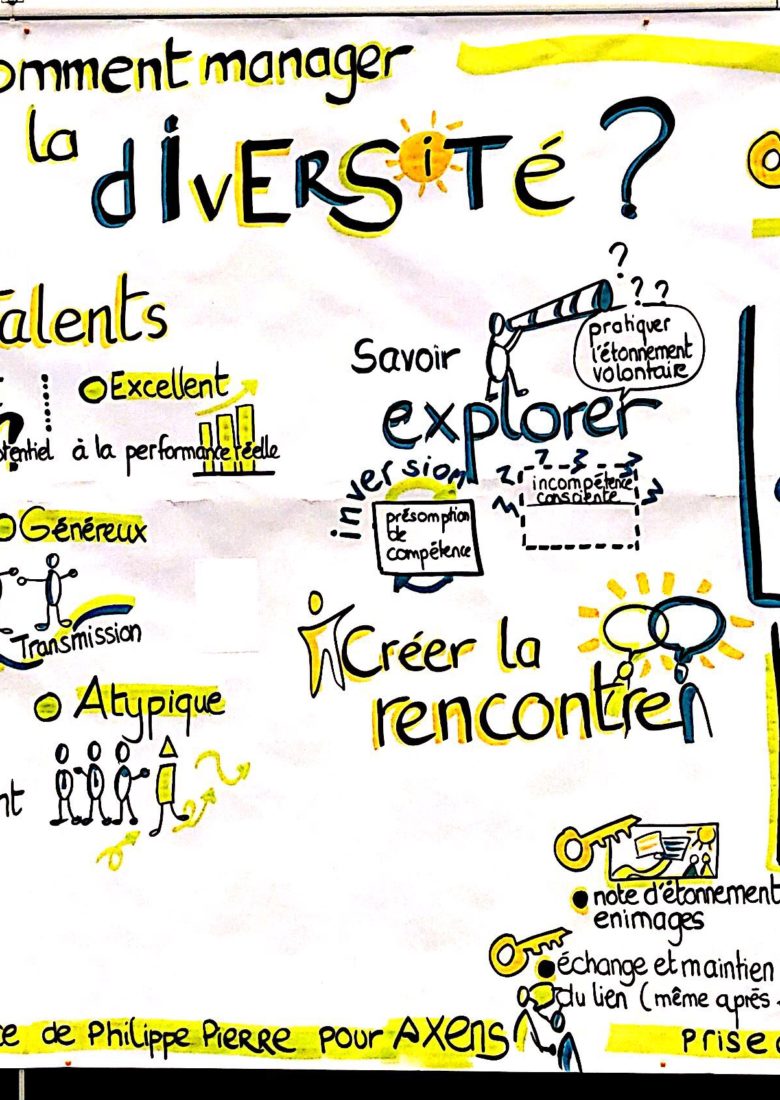 omment manager
la
diversité ?
Talents
Excellent
otentiel à la performance réelle
Généreux
Transmission
Atypique
nt
Savoir
explorer
? ? ?
pratiquer
l'étonnement
volontaire
inversion
présomption
de
compétence
incompétence
consciente
Créer la
rencontre
note d'étonnement
en images
échange et maintien
du lien (même après
ce de Philippe Pierre pour AXENS
prise